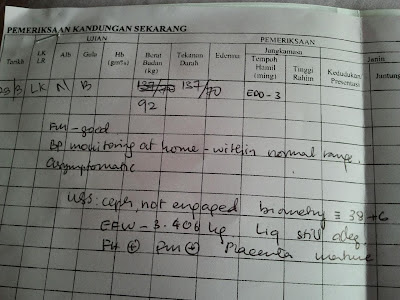 PEMERIKSAAN KANDUNGAN SEKARANG
UJIAN
PEMERIKSAAN
Tarikh
LK
LR
Alb
Gula
Hb
(gm%)
Berat
Badan
(kg)
Tekanan
Darah
Edema
Jangkamasa
Tempoh
Hamil
(ming)
Tinggi
Rahim
Janin
Kedudukan/
Presentasi
Jantung
LK N B 137/70 137/70 EDD-3
92
FM - good
BP monitoring at home - within normal range.
Asymptomatic
USS: ceph, not engaged biometry ≡ 38+6
EFW - 3.406 kg Liq still adeq.
FH ⊕ FM ⊕ Placenta mature